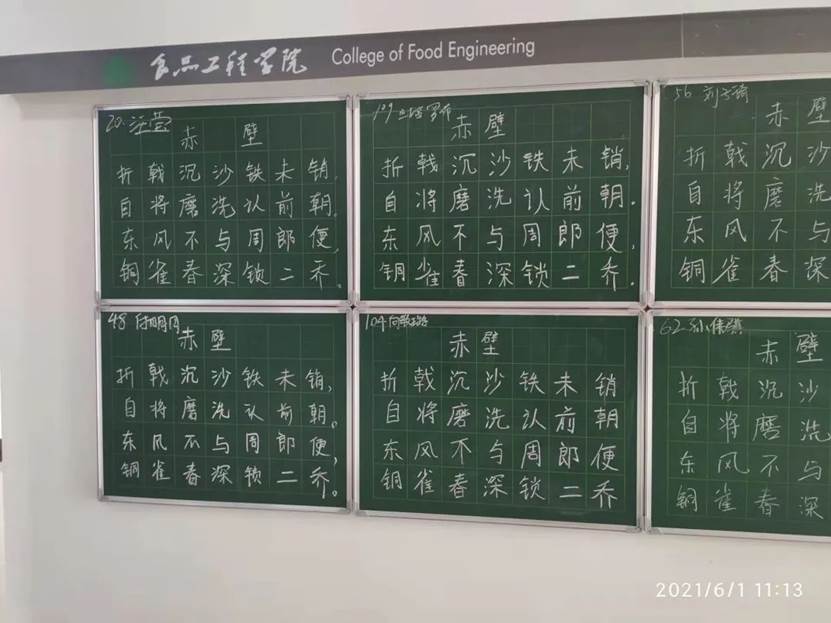 食品工程学院 College of Food Engineering
20. 汪莹
赤壁
折戟沉沙铁未销,
自将磨洗认前朝。
东风不与周郎便,
铜雀春深锁二乔。
赤壁
折戟沉沙铁未销,
自将磨洗认前朝.
东风不与周郎便,
铜雀春深锁二乔.
56
赤壁
折戟沉沙
自将磨洗
东风不与
铜雀春深
48
赤壁
折戟沉沙铁未销,
自将磨洗认前朝。
东风不与周郎便,
铜雀春深锁二乔。
104
赤壁
折戟沉沙铁未销
自将磨洗认前朝
东风不与周郎便
铜雀春深锁二乔
62
赤壁
折戟沉沙
自将磨洗
东风不与
铜雀春深
2021/6/1 11:13